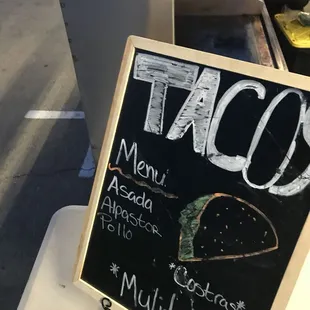 TACOS
Menu
Asada
Alpastor
Pollo
*Costras*